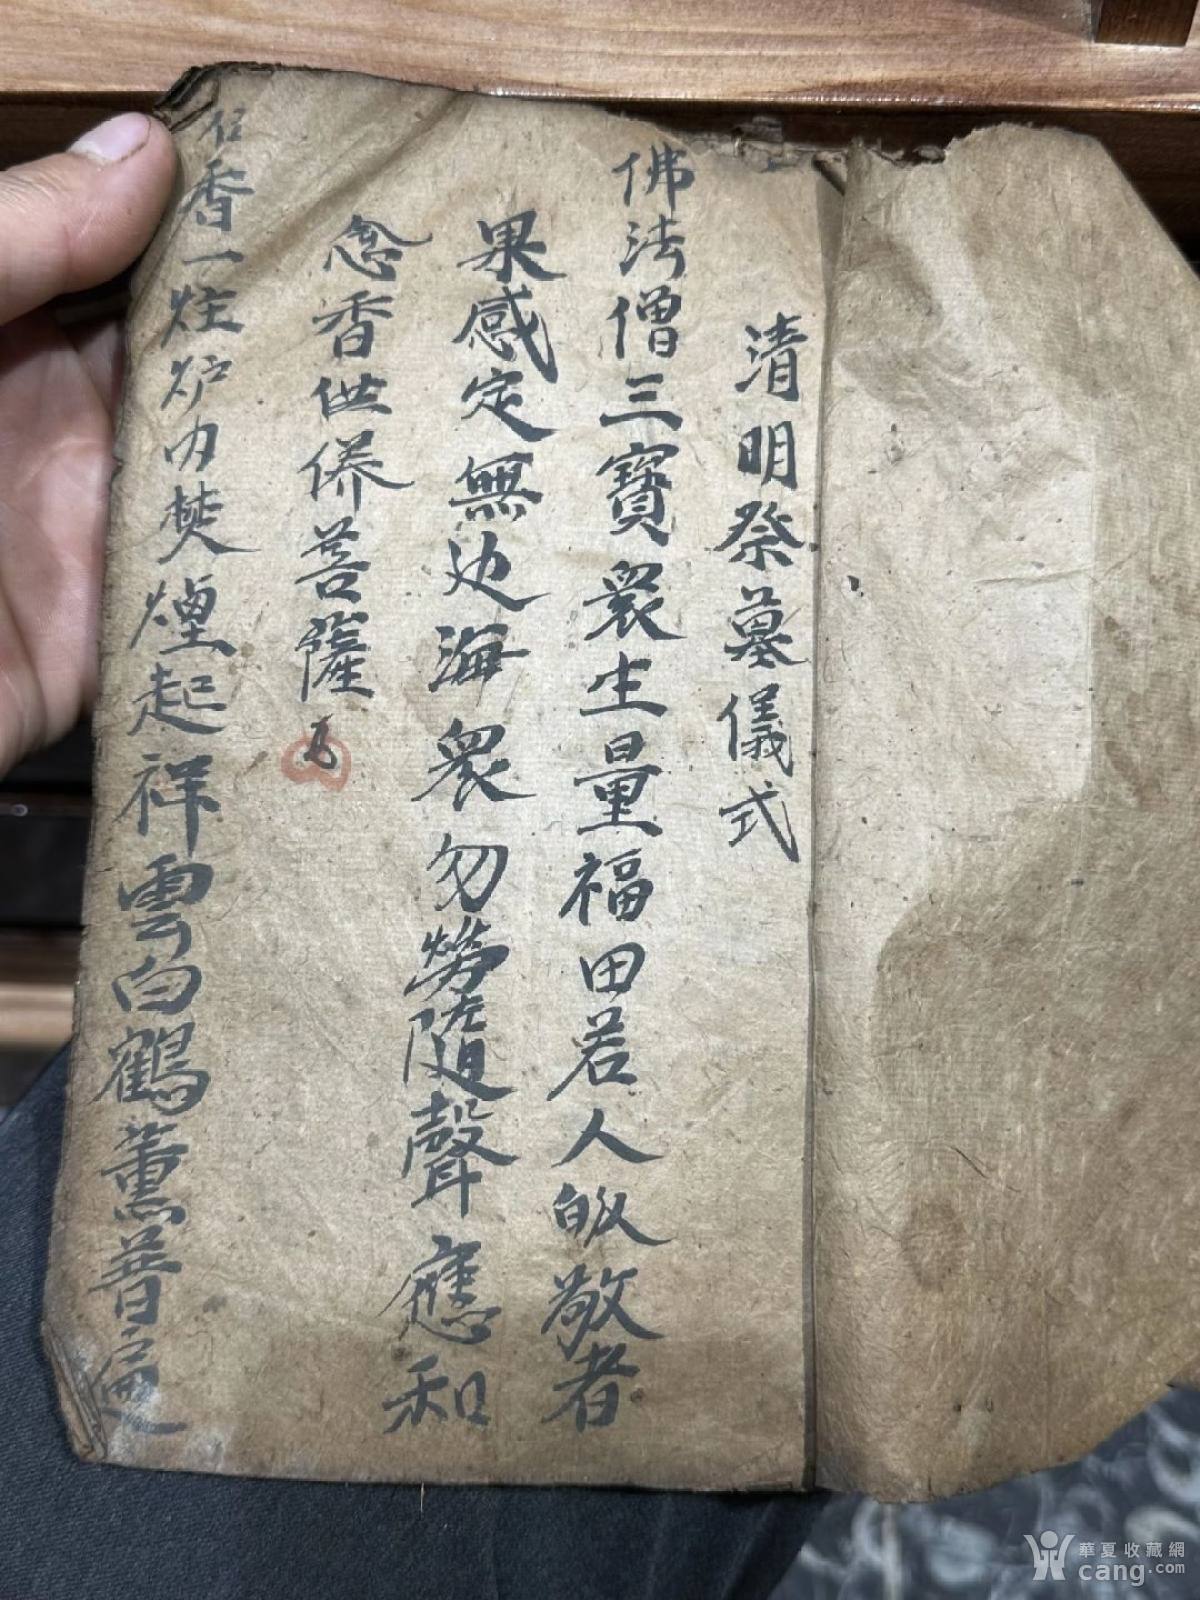 清明祭墓儀式
佛法僧三寶眾生量福田若人皈敬者
果感定無边海眾勿勞隨聲應和
念香供养菩薩
香一炷炉内焚煙起祥雲白鶴薰普遍
華夏收藏網
cang.com